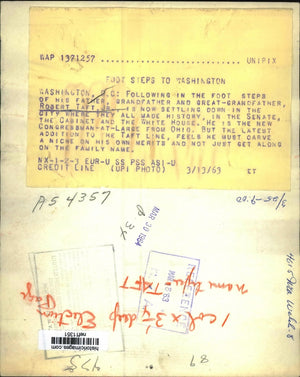 WAP 1371257 UNIPIX
FOOT STEPS TO WASHINGTON
WASHINGTON, D.C: FOLLOWING IN THE FOOT STEPS
OF HIS FATHER, GRANDFATHER AND GREAT-GRANDFATHER,
ROBERT TAFT JR. IS NOW SETTLING DOWN IN THE
CITY WHERE THEY ALL MADE HISTORY, IN THE SENATE,
THE CABINET AND THE WHITE HOUSE. HE IS THE NEW
CONGRESSMAN-AT-LARGE FROM OHIO. BUT THE LATEST
ADDITION TO THE TAFT LINE FEELS HE MUST CARVE
A NICHE ON HIS OWN MERITS AND NOT JUST GET ALONG
ON THE FAMILY NAME.
NX-1-2-3 EUR-U SS PSS ASI-U
CREDIT LINE (UPI PHOTO) 3/13/63
A54357
MAR 30 1964
34
1 col x 3 1/4 dup Election
Page
name type TAFT
historicimages.com
nef11351
473